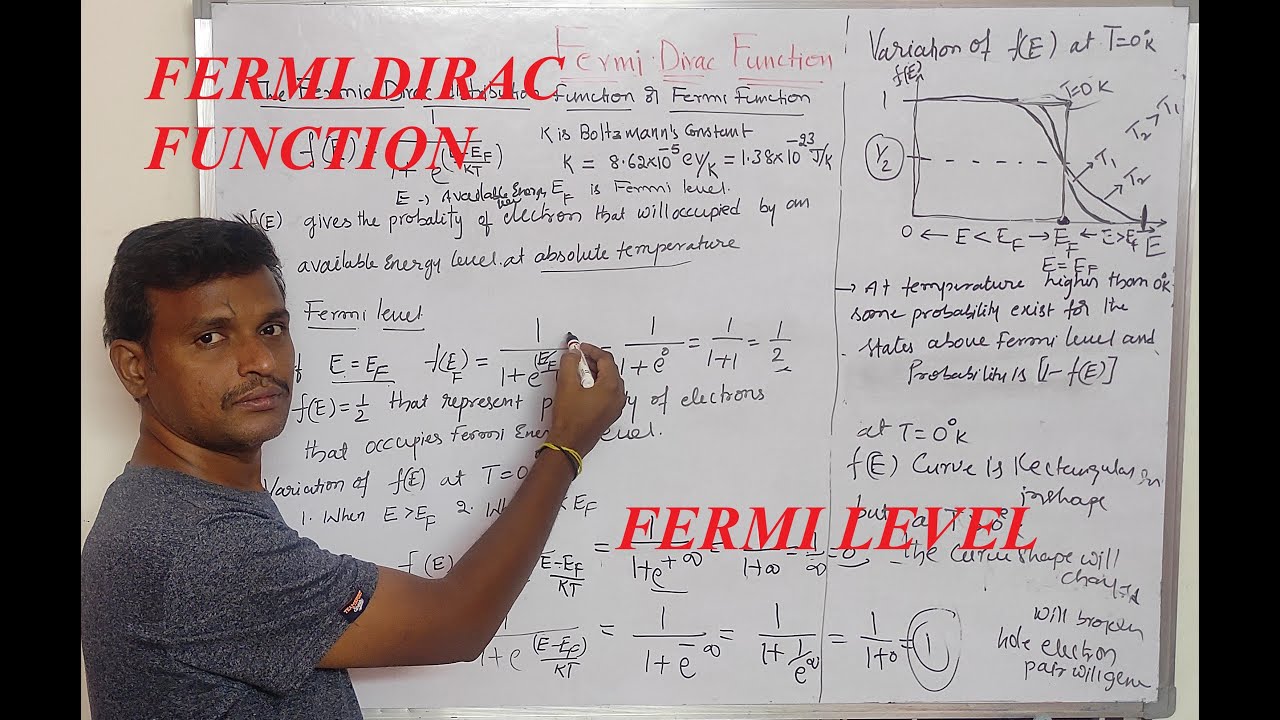 FERMI DIRAC
FUNCTION
FERMI LEVEL
Fermi-Dirac Function
The Fermic Dirac distribution function & Fermi Function
K is Boltzmann's Constant
K = 8.62×10⁻⁵ ev/K = 1.38×10⁻²³ J/K
1
1+e^(E-EF)/KT
E → Available Energy EF is Fermmi level.
f(E) gives the probality of electron that will occupied by an
available Energy level. at absolute temperature
Fermi level
E = EF f(EF) = 1/1+e^(EF = 1/1+e⁰ = 1/1+1 = 1/2
f(E) = 1/2 that represent of electrons
that occupies Fermi Ener level.
Variation of f(E) at T=0
1. When E>EF 2. Wh EF
f(E) E-EF/KT = 1/1+e^+∞ = 1/1+∞ = 1/∞ = 0
1/1+e^(E-EF)/KT = 1/1+e^-∞ = 1/1+1/e^∞ = 1/1+0 = 1
Variation of f(E) at T=0°K
f(E)
1
T=0K
T2 → T1
1/2
T1
T2
0 ← E < EF → EF ← E>EF E
E = EF
→ At temperature higher than 0°K
some probability exist for the
states above Fermi level and
Probability is [1-f(E)]
at T=0°K
f(E) Curve is Rectangular in
in shape
but
the Curve shape will
will broken
hole electron
pair will gene